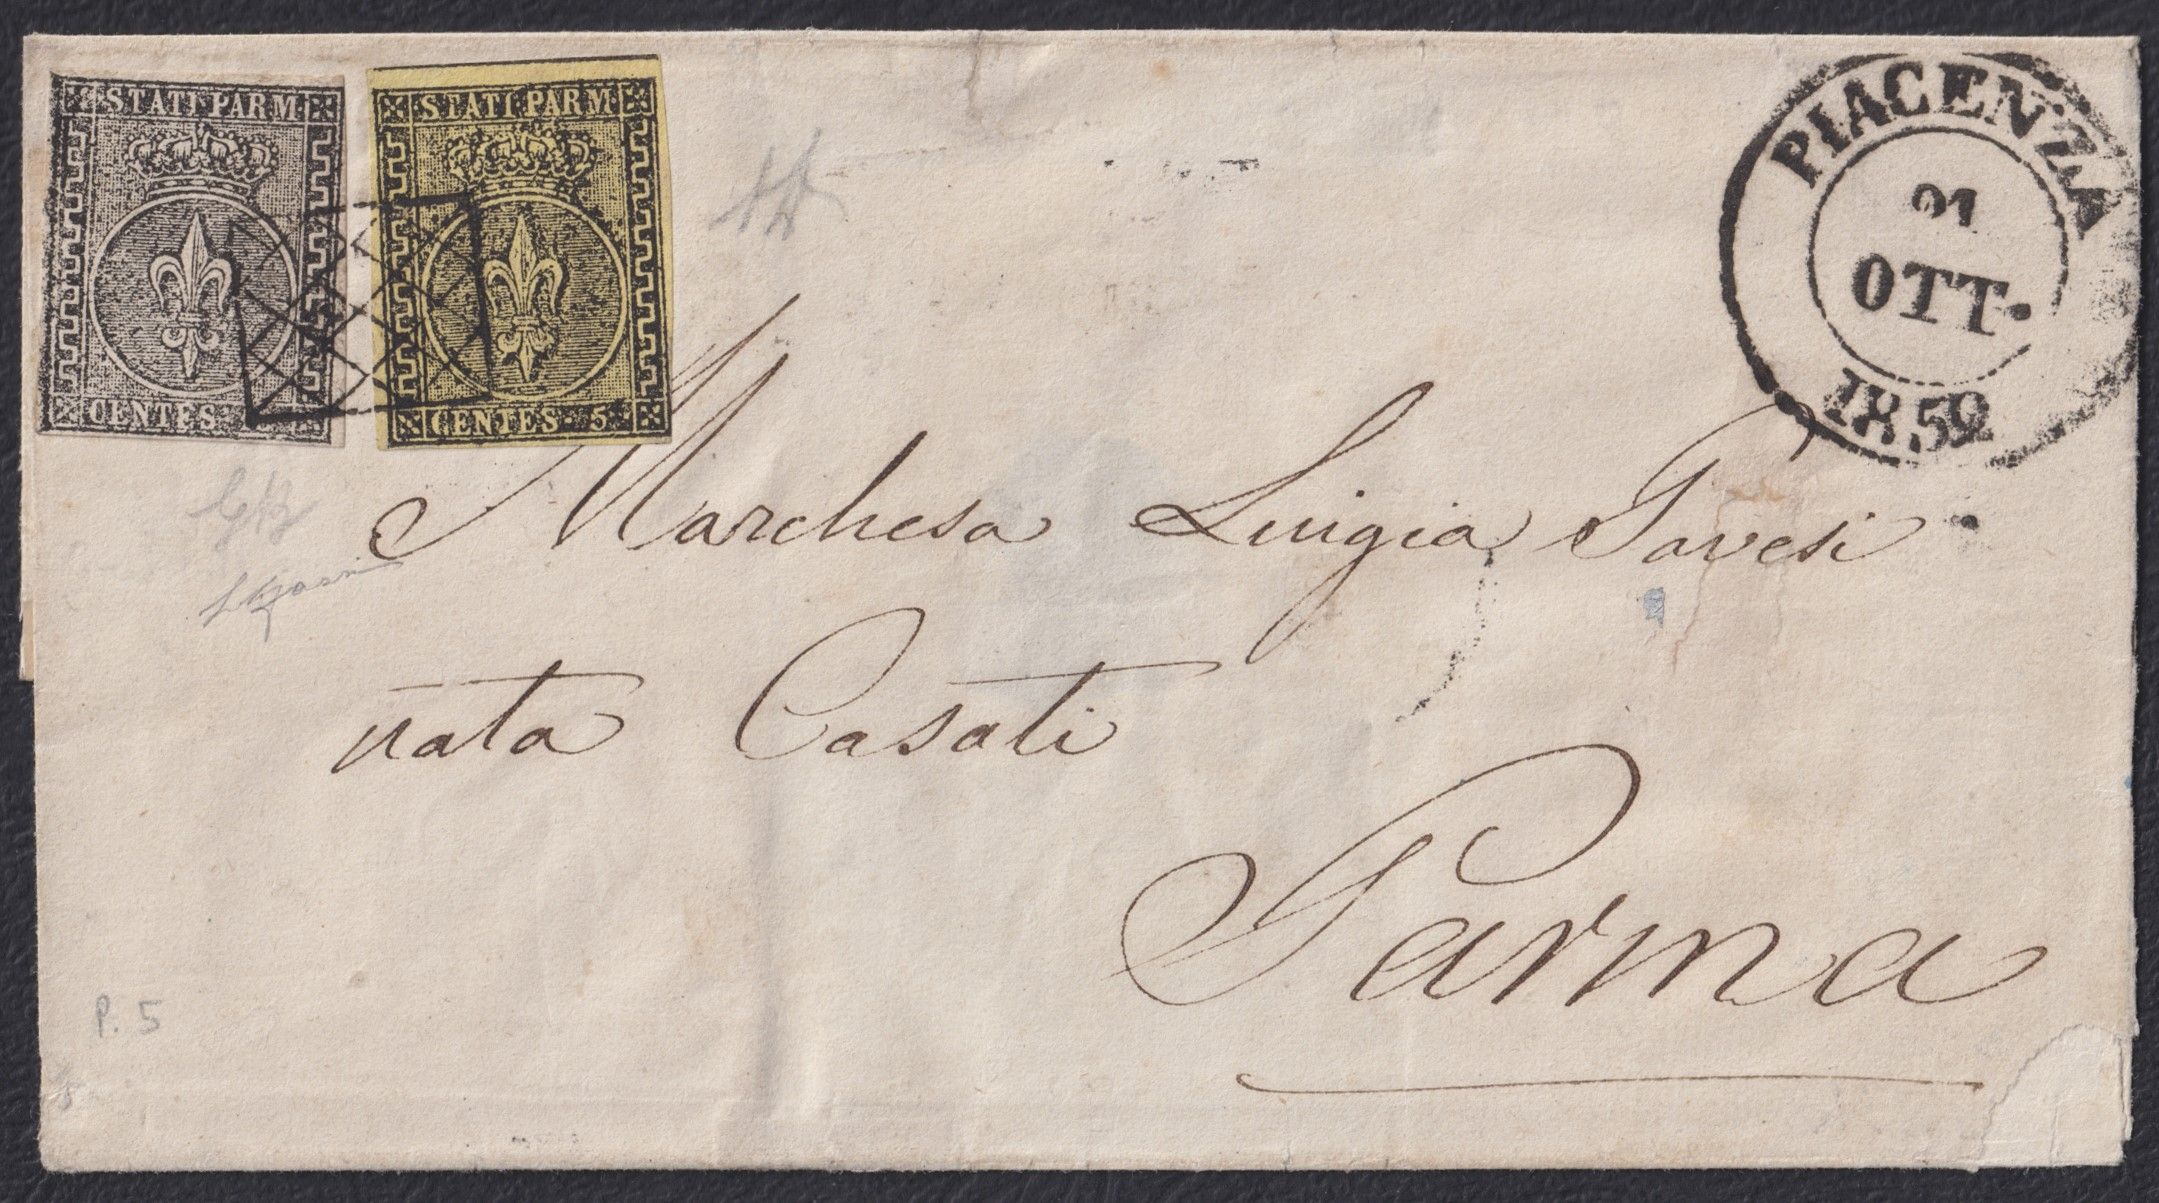 STATI PARM
STATI PARM
CENTES
CENTES 5
PIACENZA
21
OTT.
1859
Marchesa Luigia Pavesi
nata Casati
Parma
P. 5